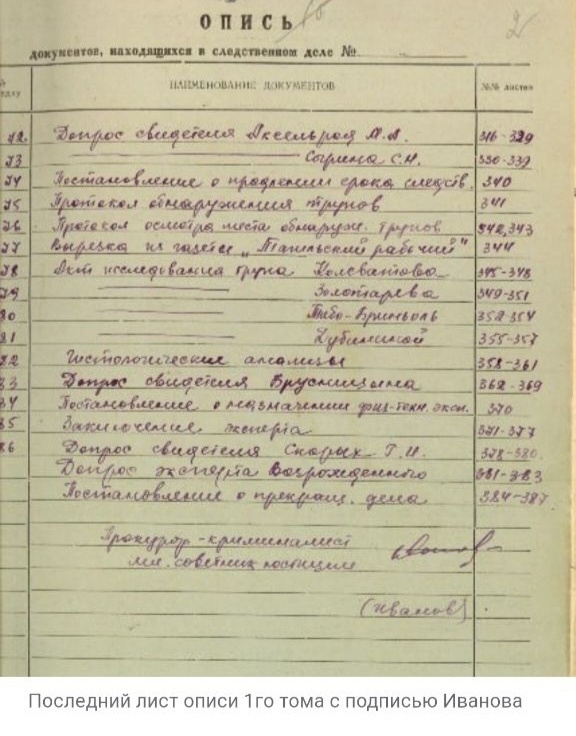 ОПИСЬ
документов, находящихся в следственном деле №
№ НАИМЕНОВАНИЕ ДОКУМЕНТОВ №№ листов
72 Допрос свидетеля Аксельрод М.А. 316-329
73 ———— Согрина С.Н. 330-339
74 Постановление о продлении срока следств. 340
75 Протокол обнаружения трупов 341
76 Протокол осмотра места обнаруж. трупов 342,343
77 Вырезка из газеты „Тагильский рабочий" 344
78 Акт исследования трупа Колеватова 345-348
79 ———— Золотарева 349-351
80 ———— Тибо-Бриньоль 352-354
81 ———— Дубининой 355-357
82 Гистологические анализы 358-361
83 Допрос свидетеля Брусницына 362-369
84 Постановление о назначении физ-техн. эксп. 370
85 Заключение эксперта 371-377
86 Допрос свидетеля Скорых Г.И. 378-380
Допрос эксперта Возрожденного 381-383
Постановление о прекращ. дела 384-387
Прокурор-криминалист
мл. советник юстиции
(Иванов)
Последний лист описи 1го тома с подписью Иванова